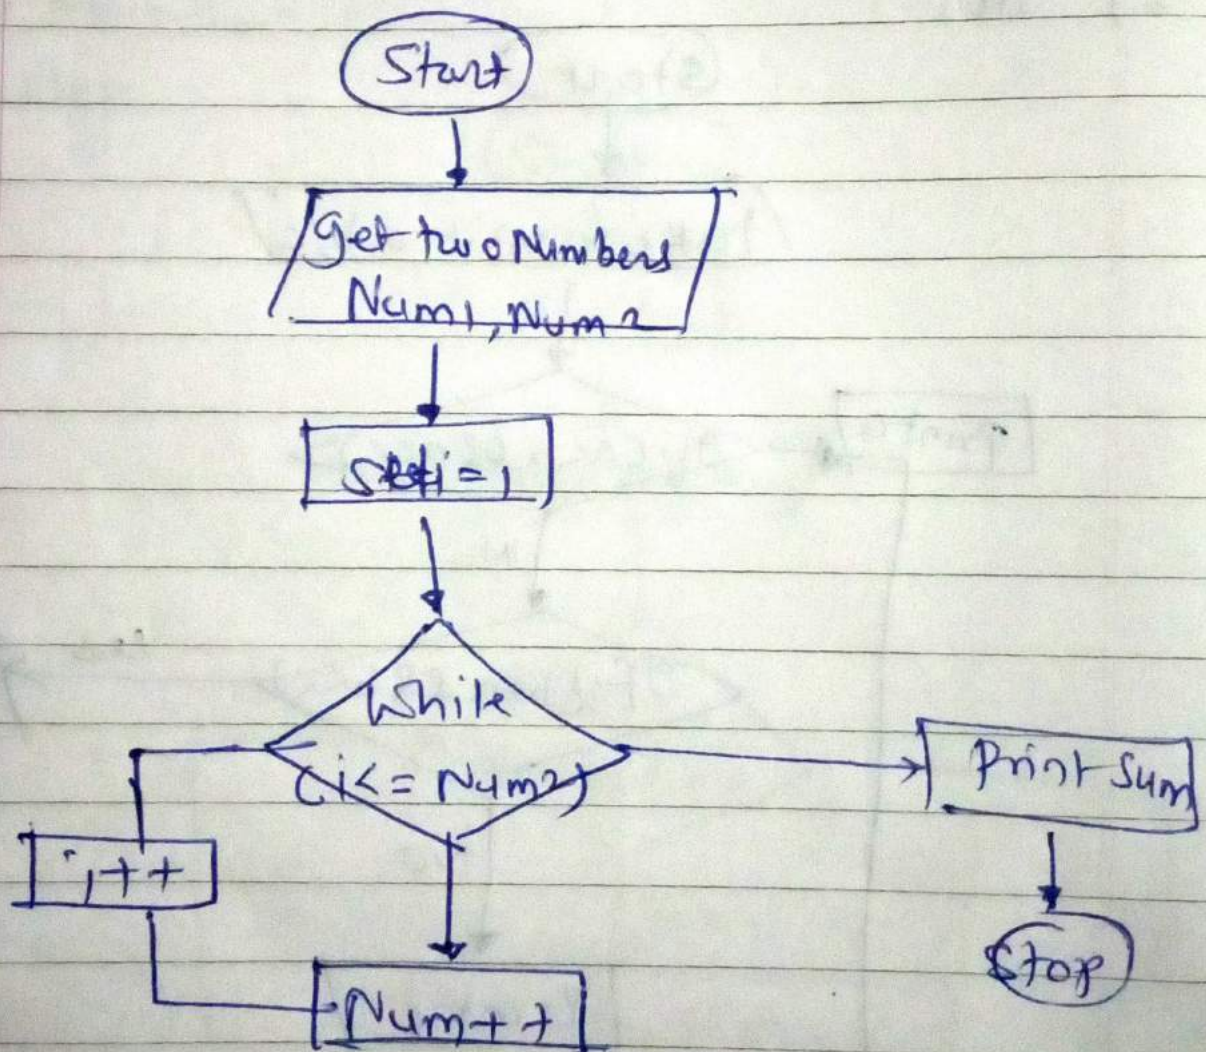 Start
Get two Numbers
Num1, Num2
Set i = 1
While
(i <= Num2)
Print Sum
i++
Stop
Num++